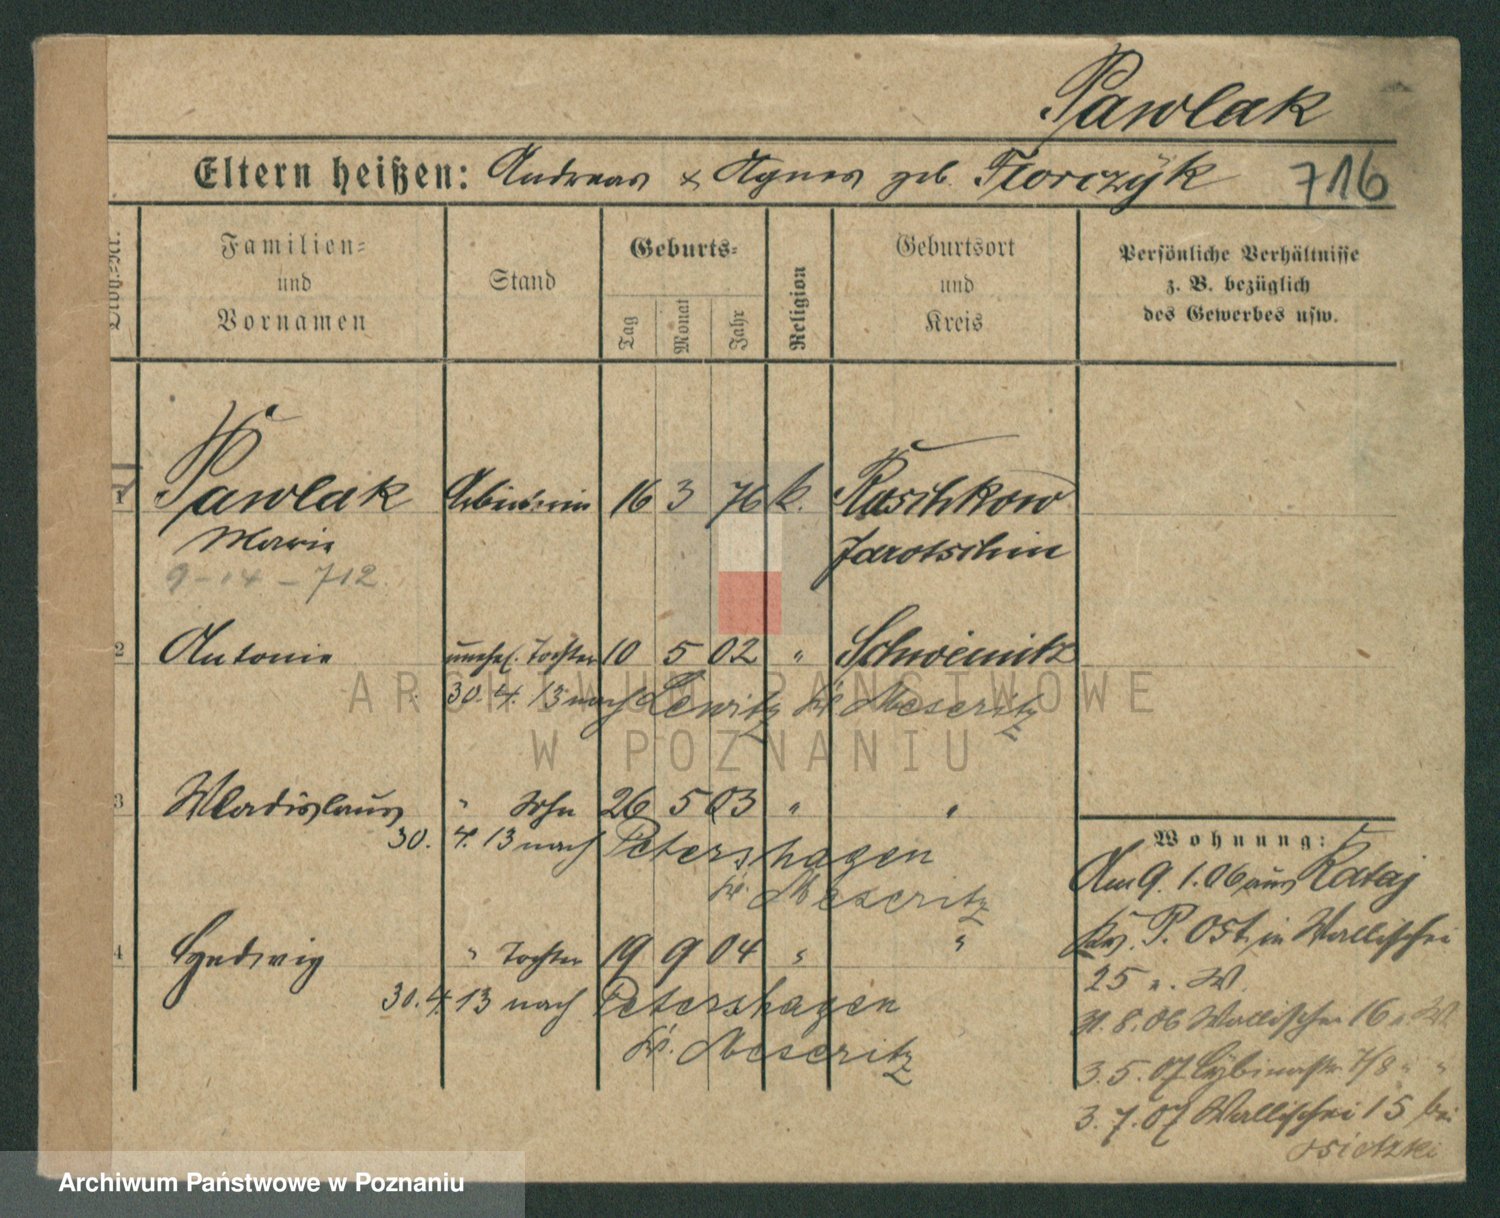 Pawlak
Eltern heißen: Andreas & Agnes geb. Florczÿk 716
Familien- und Vornamen
Stand
Geburts-
Tag Monat Jahr
Religion
Geburtsort und Kreis
Persönliche Verhältnisse z. B. bezüglich des Gewerbes usw.
1 Pawlak Arbeiterin 16 3 76 k. Raschkow
Marie Jarotschin
9-14-712
2 Antonie unehel. Tochter 10 5 02 " Schweinitz
30. 4. 13 nach Lewitz Kr. Meseritz
3 Wladislaus " Sohn 26 5 03 " "
30. 4. 13 nach Petershagen
Kr. Meseritz
4 Hedwig " Tochter 19 9 04 " "
30. 4. 13 nach Petershagen
Kr. Meseritz
Wohnung:
Am 9. 1. 06 aus Rataj
Kr. P. Ost. in Wallischei
25 n. W.
31. 8. 06 Wallischei 16 n. W.
3. 5. 07 Cybinastr 7/8 " "
3. 7. 07 Wallischei 15 bei
ARCHIWUM PAŃSTWOWE
W POZNANIU
Archiwum Państwowe w Poznaniu